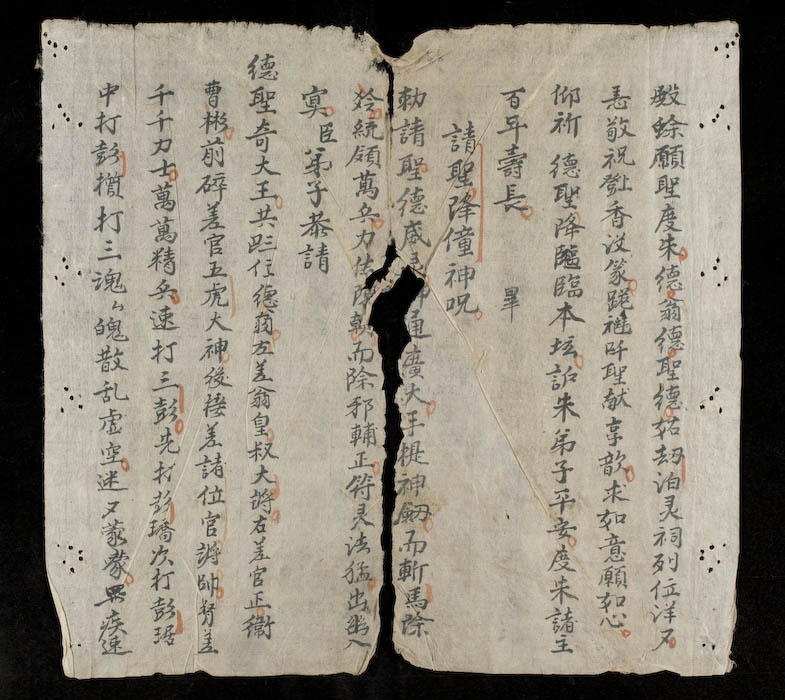 殿餘願聖度朱德翁德聖德右劫泊灵祠列位洋々
恙敬祝登香沒篆踶禮吀聖献享歆求如意願如心
仰祈德聖降臨臨本坛訴朱弟子平安度朱諸主
百年壽長 畢
請聖降僮神呪
勅請聖德威灵神通廣大手提神劔而斬馬除
灵統領萬兵力佐而除邪輔正符灵法猛出幽入
寘臣弟子恭請
德聖奇大王共德翁左差翁皇叔大將右差官正衛
曹彬前碎差官五虎大神後接差諸位官將帥差
千千力士萬萬精兵速打三彭先打彭矯次打彭琚
中打彭攅打三魂〻魄散乱虚空迷々蒙蒙疾速